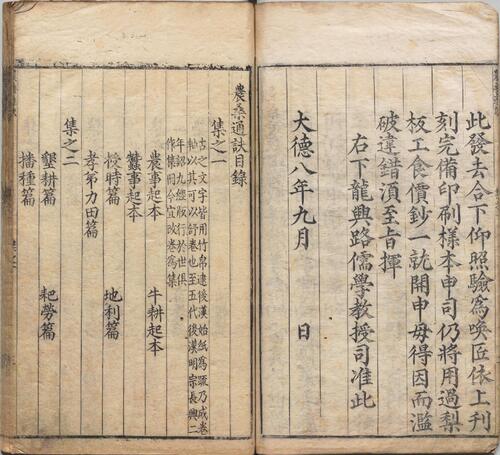 此發去合下仰照驗為喚匠依上刋
刻完備印刷樣本申司仍將用過梨
板工食價鈔一就開申毋得因而濫
破違錯湏至旨揮
右下龍興路儒學教授司准此
大德八年九月 日
農桑通訣目錄
集之一
古之文字皆用竹帛逮後漢始紙為䟽乃成卷
軸以其可以舒卷也至五代後漢明宗長興二
年詔九經版行於世俱
作集冊今宜改卷為集
農事起本 牛耕起本
蠶事起本
授時篇 地利篇
孝弟力田篇
集之二
墾耕篇 耙勞篇
播種篇